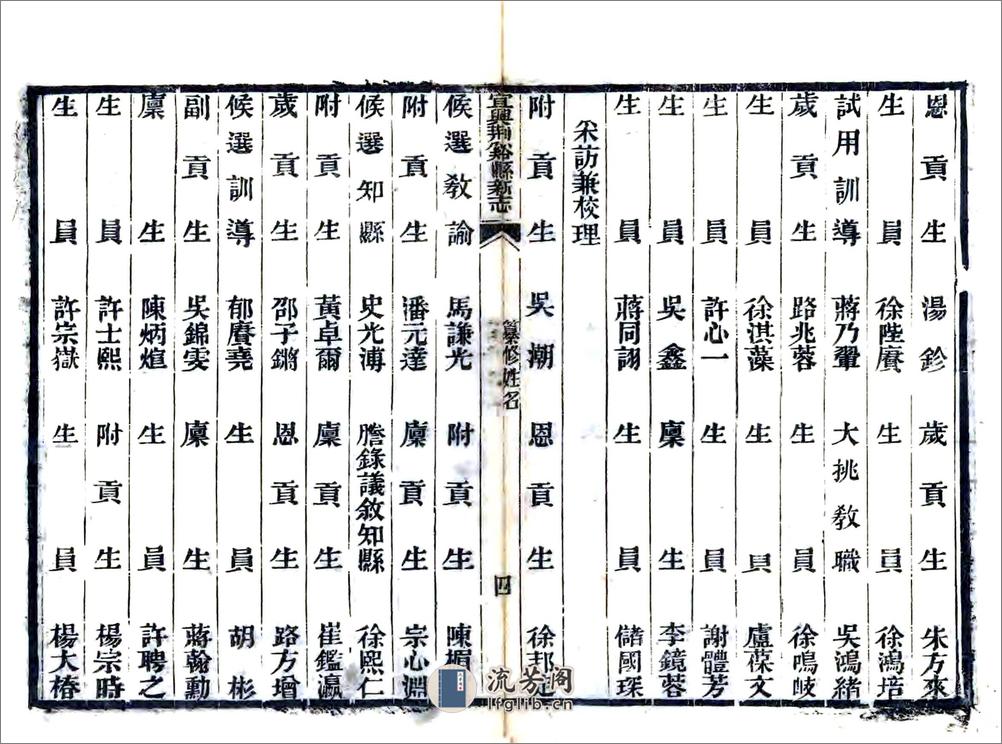 恩貢生 湯鉁 歲貢生 朱方來
生員 徐陛賡 生員 徐鴻培
試用訓導 蔣乃鞏 大挑教職 吳鴻緒
歲貢生 路兆蓉 生員 徐鳴岐
生員 徐淇藻 生員 盧葆文
生員 許心一 生員 謝體芳
生員 吳鑫 廩生 李鏡蓉
生員 蔣同詡 生員 儲國琛
采訪兼校理
附貢生 吳潮 恩貢生 徐邦
宜興荊谿縣新志 纂修姓名 四
候選教諭 馬謙光 附貢生 陳楣
附貢生 潘元達 廩貢生 宗心淵
候選知縣 史光溥 謄錄議敘知縣 徐熙仁
附貢生 黃卓爾 廩貢生 崔鑑瀛
歲貢生 邵子鏘 恩貢生 路方增
候選訓導 郁賡堯 生員 胡彬
副貢生 吳錦雯 廩生 蔣翰勳
廩生 陳炳煊 生員 許聘之
生員 許士熙 附貢生 楊宗時
生員 許宗嶽 生員 楊大椿
流芳閣
lfglib.cn